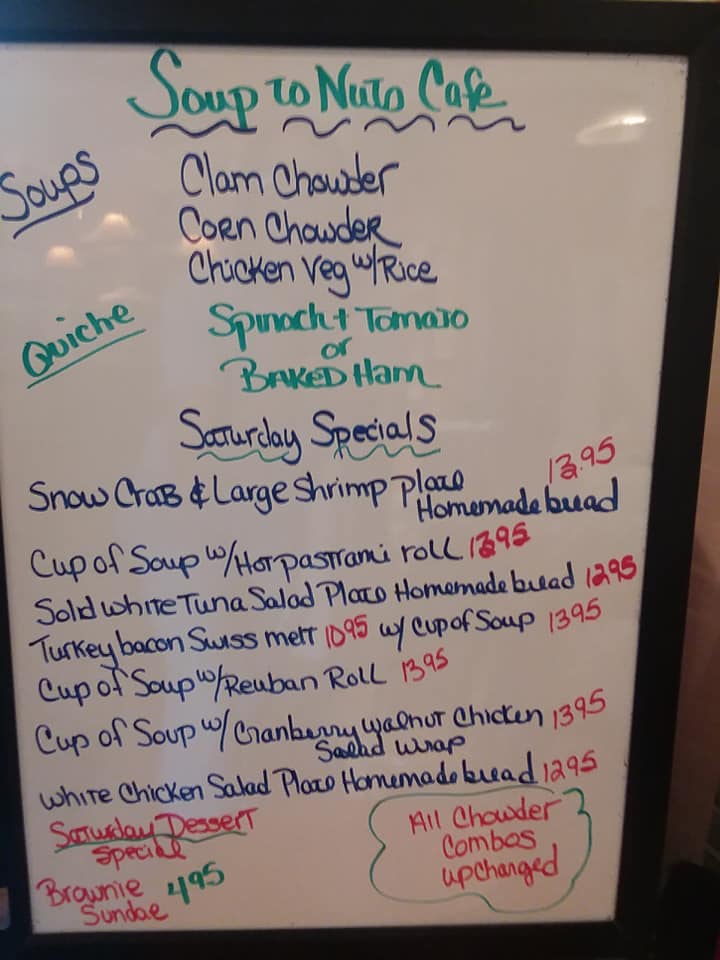 Soup to Nuts Cafe
Soups
Clam Chowder
Corn Chowder
Chicken Veg w/Rice
Quiche
Spinach + Tomato
or
Baked Ham
Saturday Specials
Snow Crab & Large Shrimp Plate 13.95
Homemade bread
Cup of Soup w/Hot pastrami roll 1395
Solid white Tuna Salad Plate Homemade bread 1295
Turkey bacon Swiss melt 1095 w/ Cup of Soup 1395
Cup of Soup w/Reuban Roll 1395
Cup of Soup w/Cranberry walnut Chicken 1395
Salad wrap
White Chicken Salad Plate Homemade bread 1295
Saturday Dessert
Special
Brownie 495
Sundae
All Chowder
Combos
upcharged